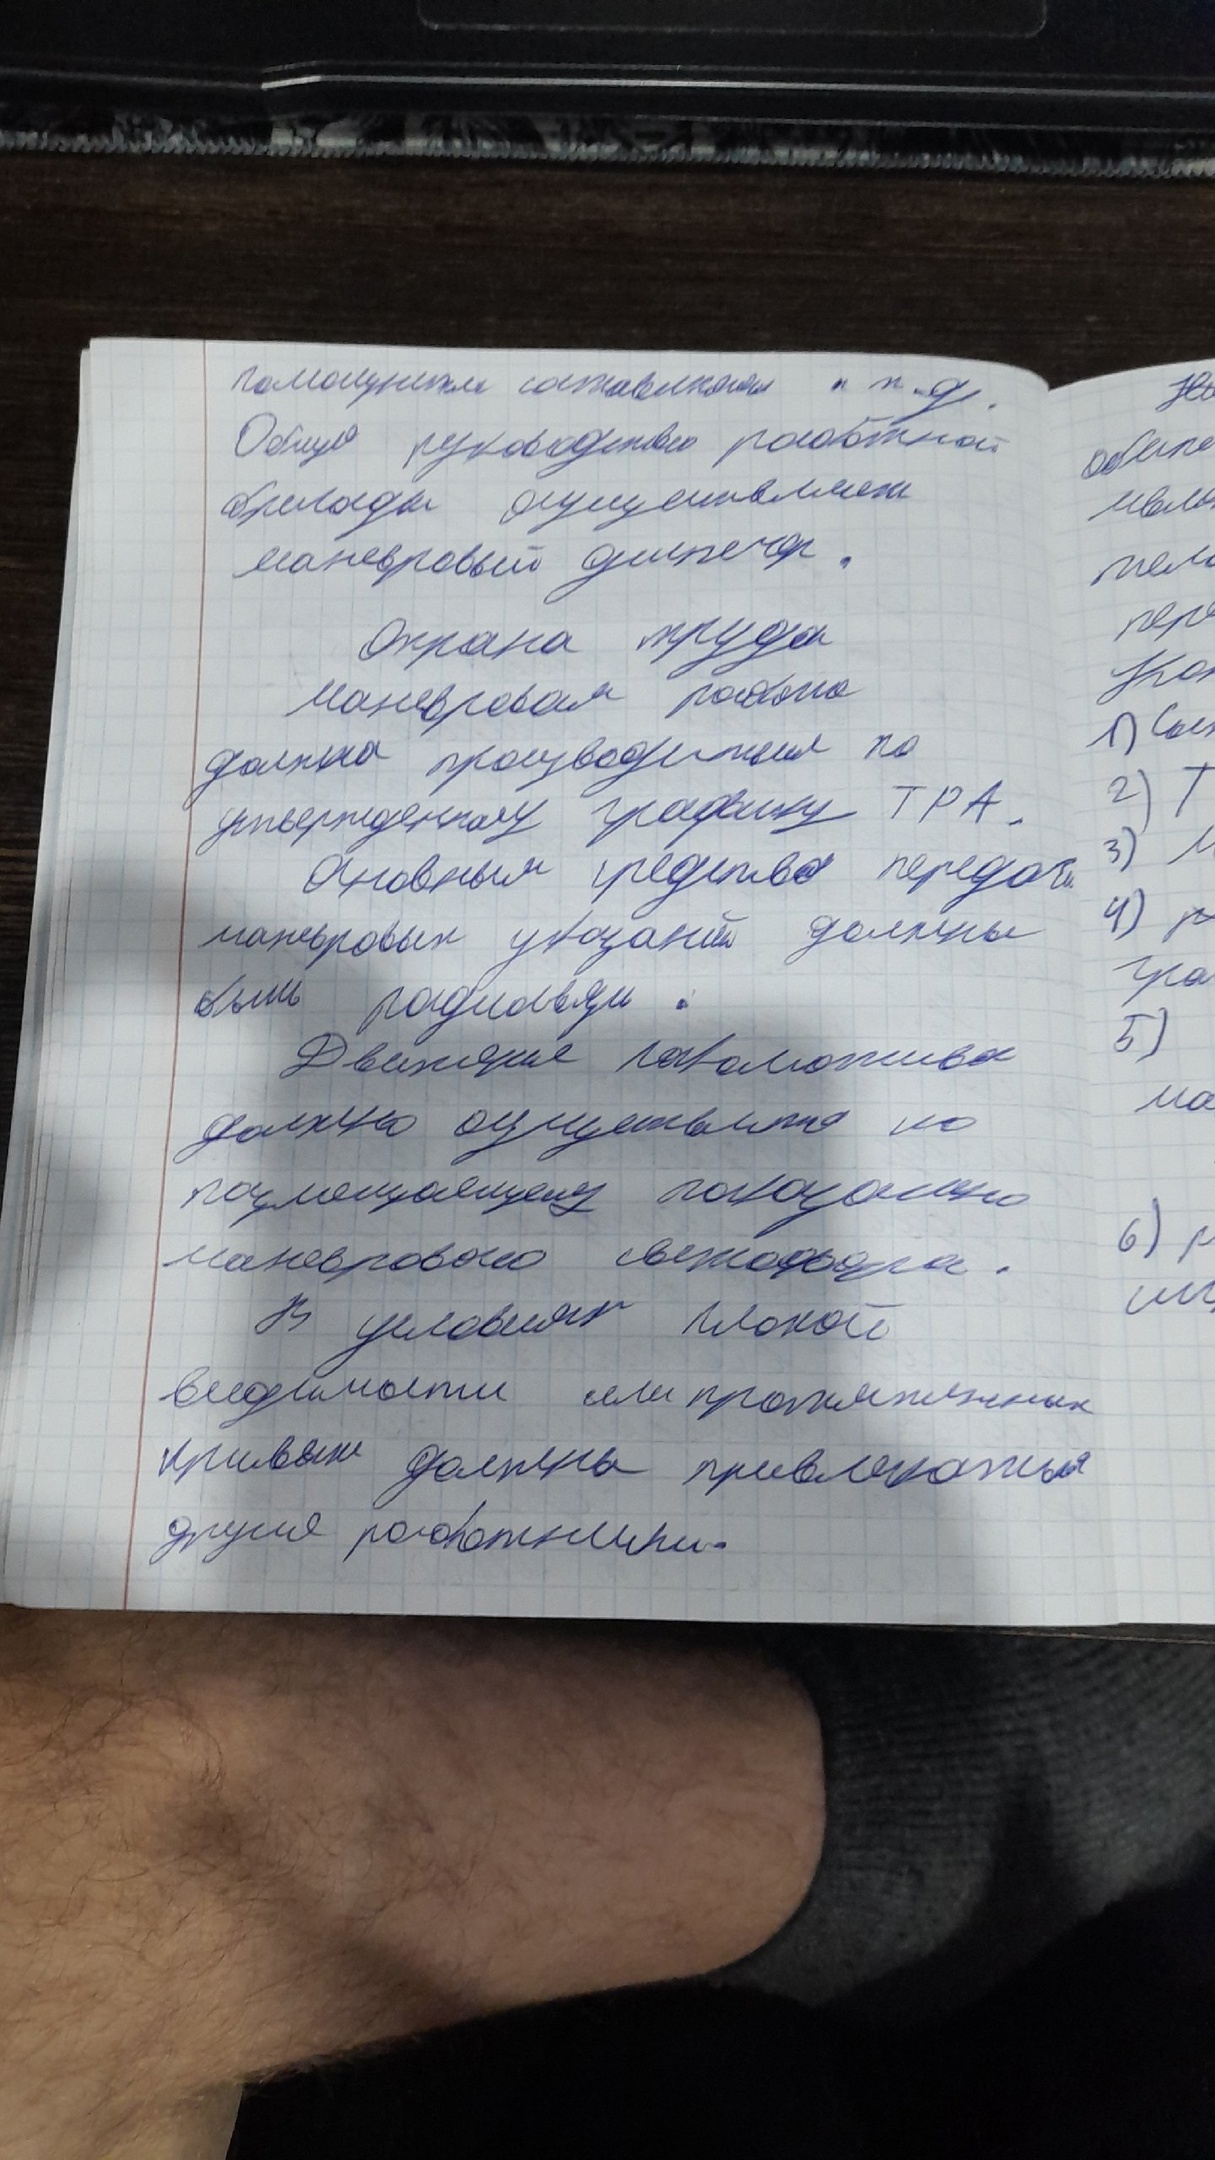 помощники составителя и т.д.
Общее руководство работной
бригады осуществляет
маневровый диспечер.
Охрана труда
Маневровая работа
должна производиться по
утвержденному графику ТРА.
Основным средства передачи
маневровых указаний должны
быть радиосвязи.
Движение локомотива
должно осуществлятся по
разрешающему показанию
маневрового светофора.
В условиях плохой
видимости или протяженных
кривых должны привлекаться
другие работники.
1)
2) Т
3) М
4)
5)
ма
6)